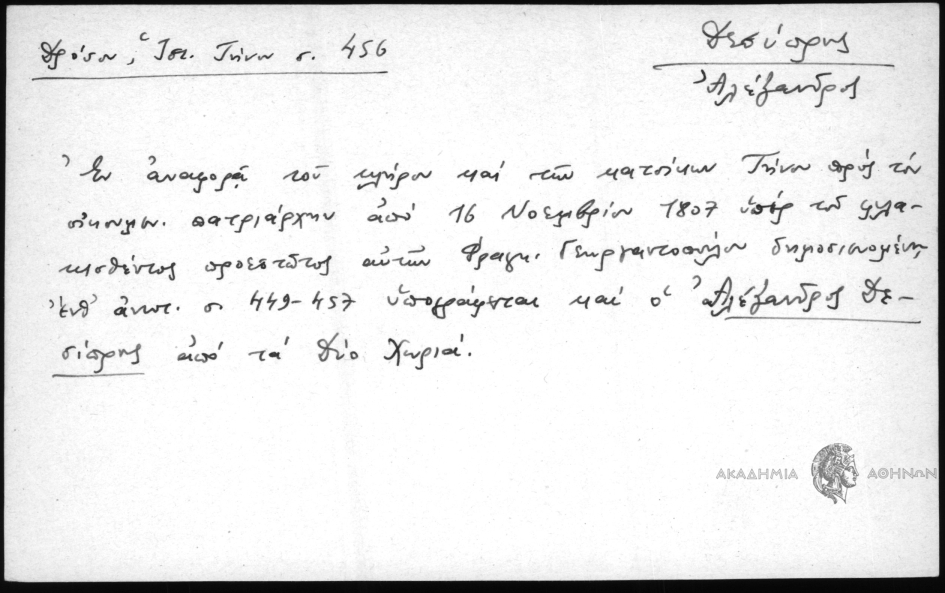 Δρόσου, Ἱστ. Τήνου σ. 456
Δεσύπρης
Ἀλέξανδρος
Ἐν ἀναφορᾷ τοῦ κλήρου καί τῶν κατοίκων Τήνου πρός τόν
οἰκουμεν. πατριάρχην ἀπό 16 Νοεμβρίου 1807 ὑπέρ τοῦ φυλα-
κισθέντος προεστῶτος αὐτῶν Φραγκ. Γεωργαντοπούλου δημοσιευομένῃ
ἔνθ' ἀνωτ. σ. 449-457 ὑπογράφεται καί ὁ Ἀλέξανδρος Δε-
σίπρης ἀπό τά Δύο Χωριά.
ΑΚΑΔΗΜΙΑ ΑΘΗΝΩΝ